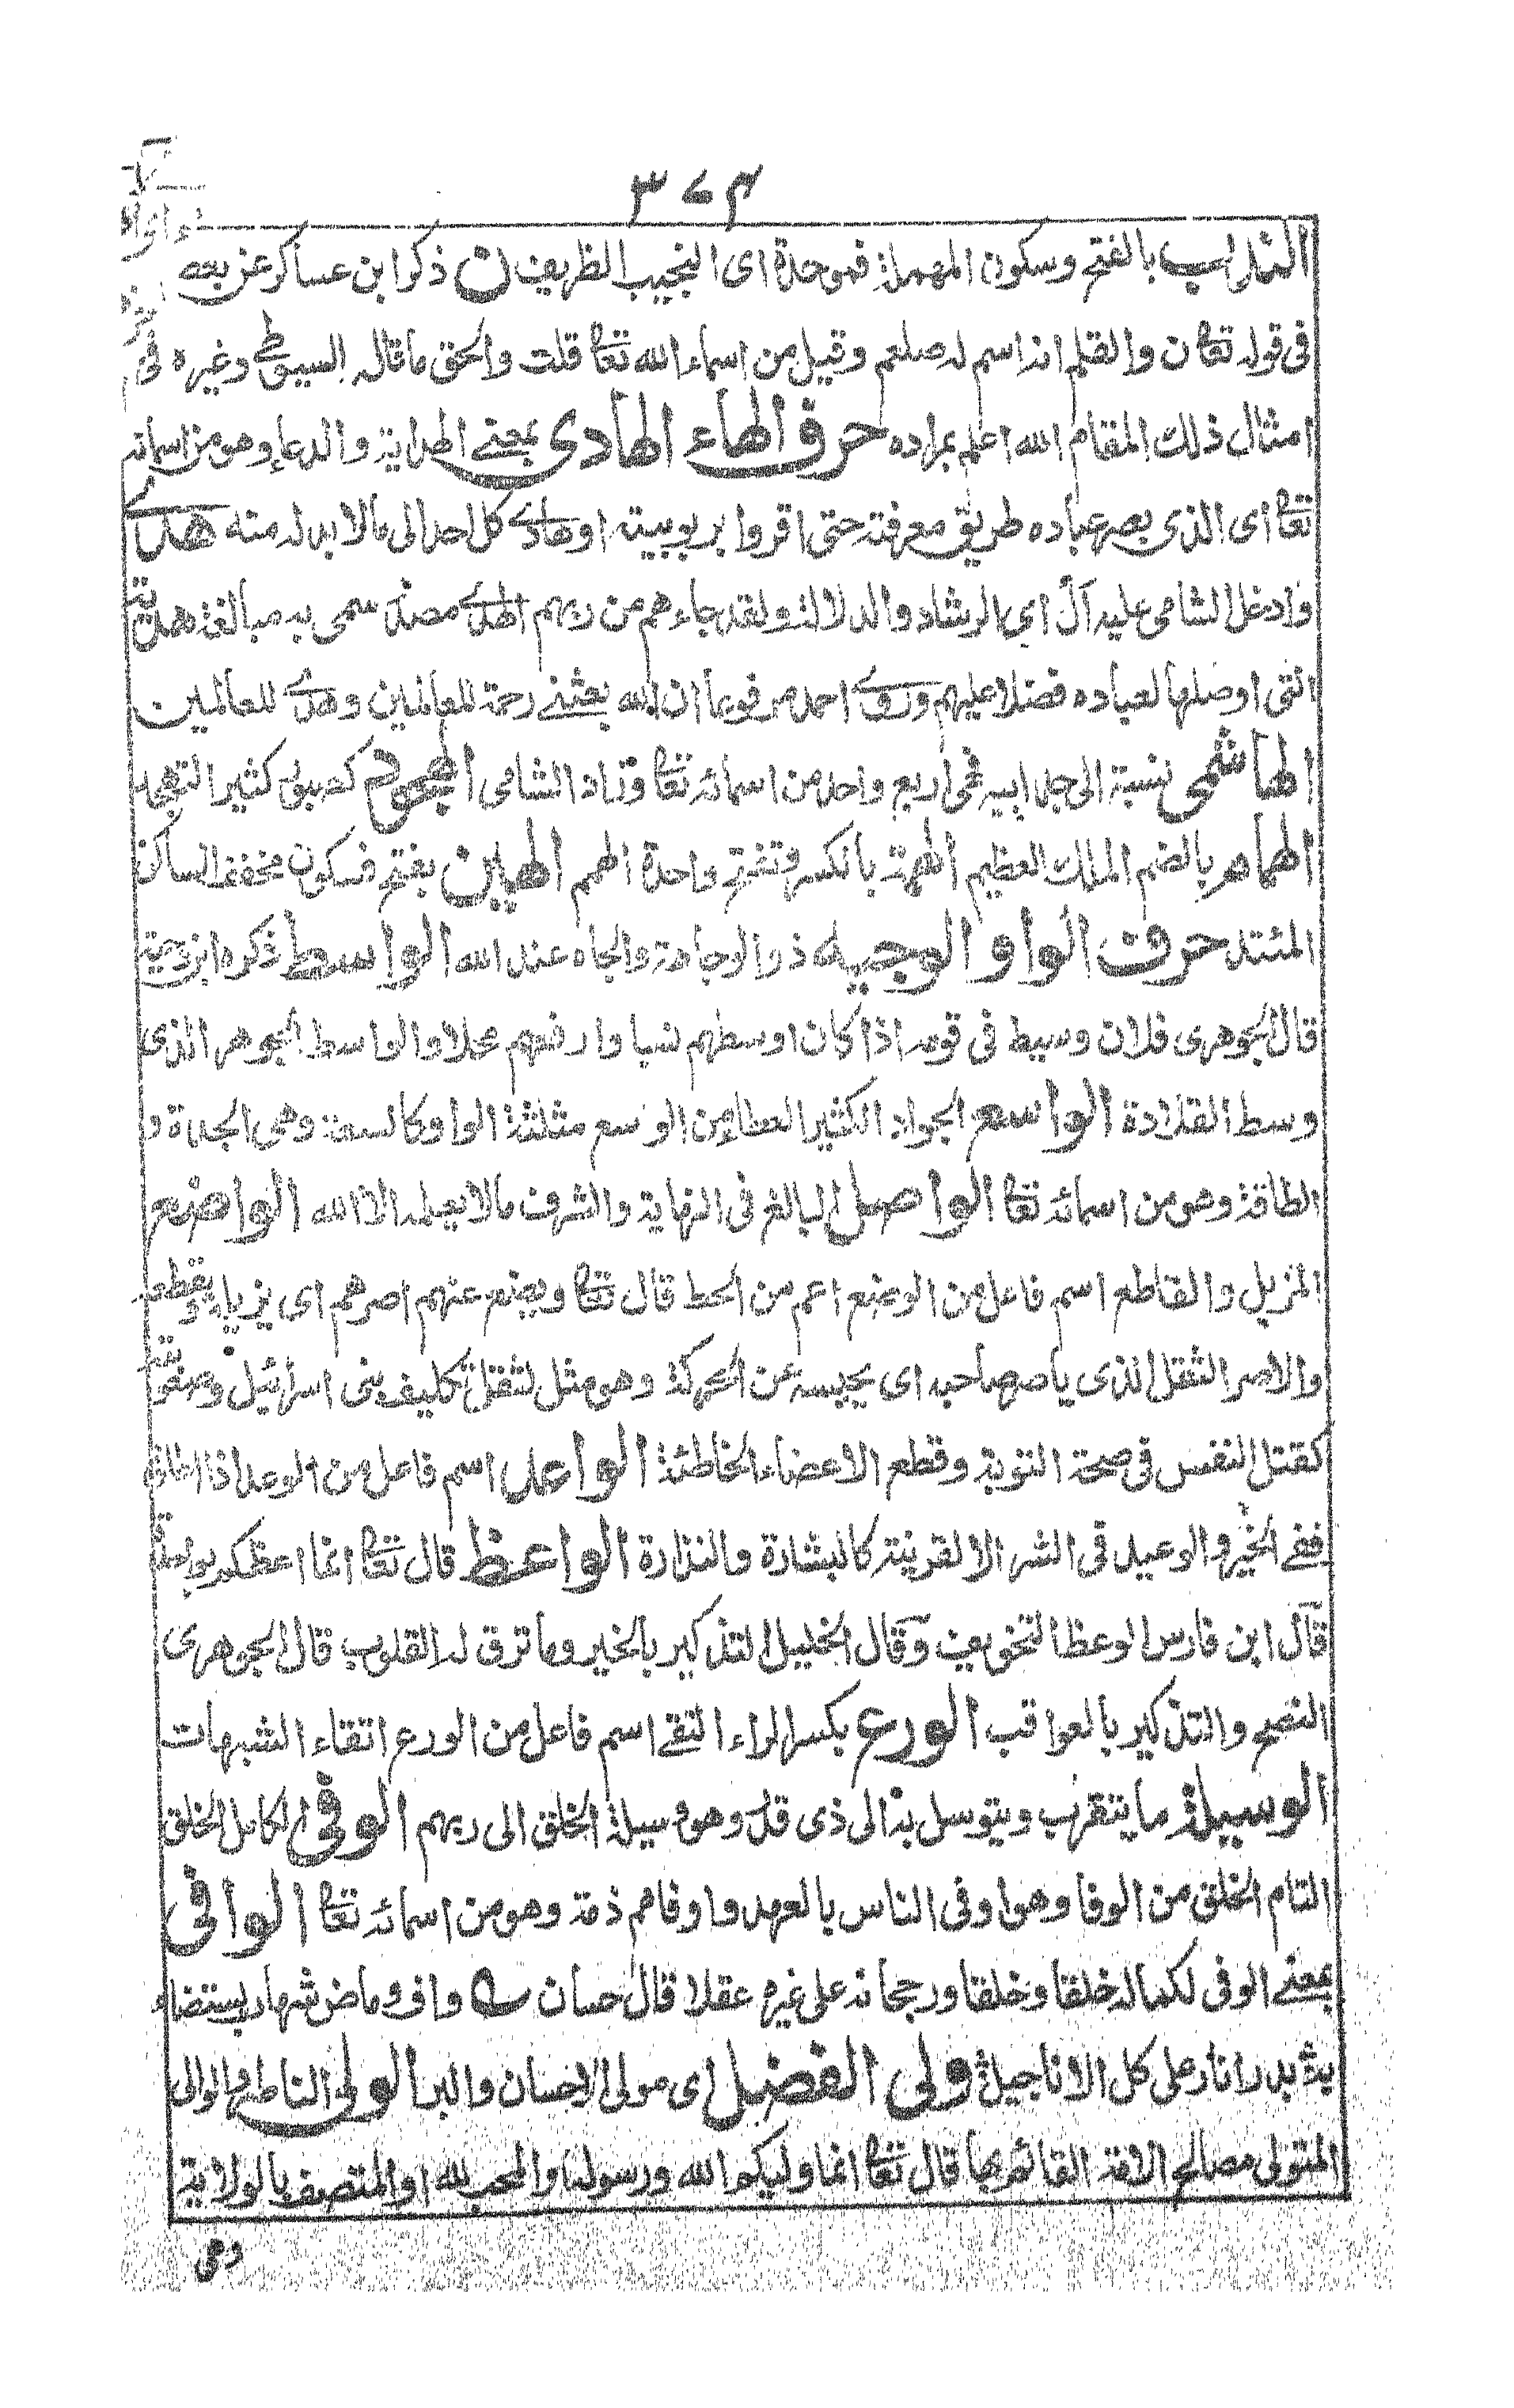 ٣٧٤
الندب بالفتح وسكون المهملة فموحدة اى النجيب الظريف ن ذكر ابن عساكر عن بعضه
فى قوله تعا ن والقلم انه اسم له صلعم وقيل من اسماء الله تعا قلت والحق ما قاله السيوطى وغيره فى
امثال ذلك المقام الله اعلم بمراده حرف الهاء الهادى بمعنى الهداية والدعاء وهو من اسمائه
تعا اى الذى بصر عباده طريق معرفته حتى اقروا بربوبيته او هادى كل احد الى ما لا بد له منه هدى
وادخل الشامى عليه ال اى الرشاد والدلالة ولقد جاءهم من ربهم الهدى مصدر سمى به مبالغة هدية
التى اوصلها لعباده فضلا عليهم وروى احمد مرفوعا ان الله بعثنى رحمة للعالمين وهدى للعالمين
الهاشمى نسبة الى جد ابيه فى اربع واحد من اسمائه تعا وزاد الشامى الهجود كصبور كثير التهجد
الهماهر بالضم الملك العظيم الهمة بالكسر وتفتح واحدة الهمم الهين بفتح فسكون مخفف الساكن
المتئد حرف الواو الوجيه ذو الوجاهة والجاه عند الله الواسط ذكره ابن دحية
قال الجوهرى فلان وسيط فى قومه اذا كان اوسطهم نسبا وارفعهم محلا والواسط الجوهر الذى
وسط القلادة الواسع الجواد الكثير العطاء من الوسع مثلثة الواو كالسعة وهى الجدة و
الطاقة وهو من اسمائه تعا الواصل البالغ فى النهاية والشرف ما لا يعلمه الا الله الواضع
المزيل والقاطع اسم فاعل من الوضع اعم من الحط قال تعا ويضع عنهم اصرهم اى يزيله ويقطعه
والاصر الثقل الذى ياصر صاحبه اى يحبسه عن الحركة وهو مثل لثقل تكليف بنى اسرائيل وصعوبته
كقتل النفس فى صحة التوبة وقطع الاعضاء الخاطئة الواعد اسم فاعل من الوعد اذا اطلق
ففى الخير والوعيد فى الشر الا لقرينة كالبشارة والنذارة الواعظ قال تعا انما اعظكم بواحدة
قال ابن فارس الوعظ التخويف وقال الخليل التذكير بالخير وما ترق له القلوب قال الجوهرى
النصح والتذكير بالعواقب الورع بكسر الراء التقى اسم فاعل من الورع اتقاء الشبهات
الوسيلة ما يتقرب ويتوسل به الى ذى قدر وهو وسيلة الخلق الى ربهم الوفى الكامل الخلق
التام الخلق من الوفا وهو اوفى الناس بالعهد واوفاهم ذمة وهو من اسمائه تعا الوافى
بمعنى الوفى لكماله خلقا وخلقا ورجحانه على غيره عقلا قال حسان واف وماض شهاب يستضاء
به بدر انار على كل الاناجيل ولى الفضل اى مولى الاحسان والبر الولى الناصر والوالى
المتولى مصالح الامة القائم بها قال تعا انما وليكم الله ورسوله والمحب لله او المتصف بالولاية
وهى